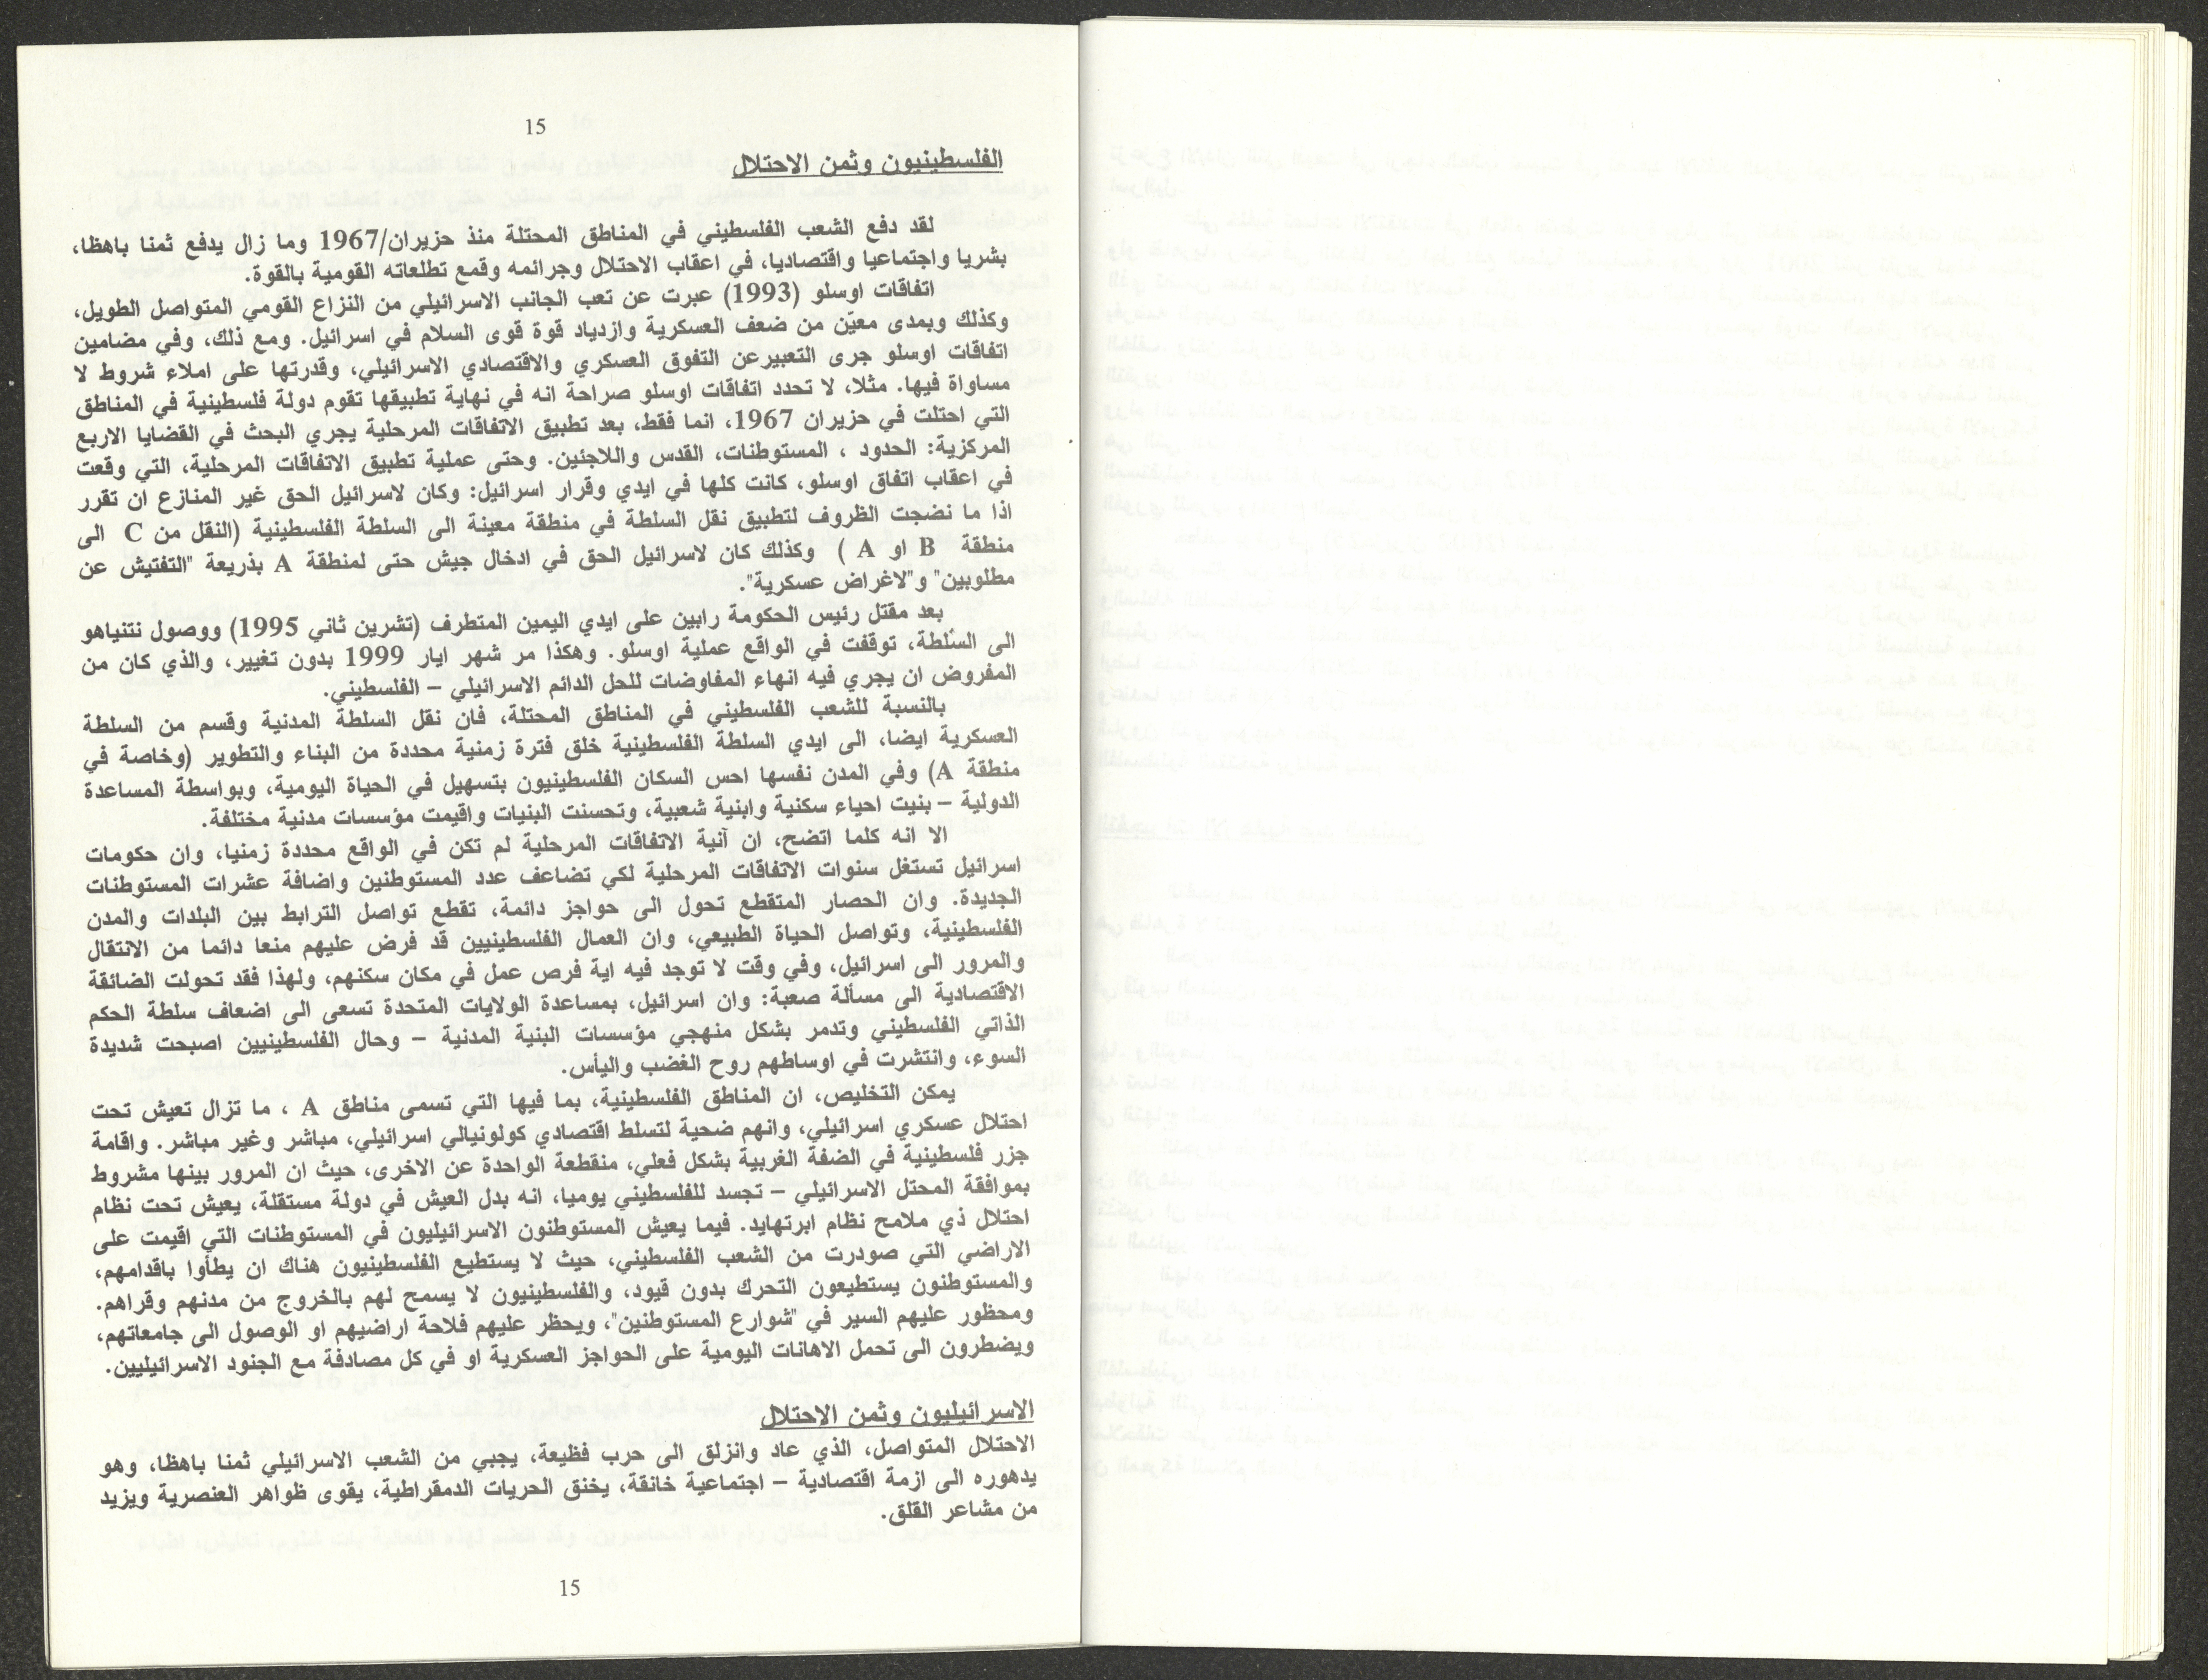 15
الفلسطينيون وثمن الاحتلال
لقد دفع الشعب الفلسطيني في المناطق المحتلة منذ حزيران/1967 وما زال يدفع ثمنا باهظا،
بشريا واجتماعيا واقتصاديا، في اعقاب الاحتلال وجرائمه وقمع تطلعاته القومية بالقوة.
اتفاقات اوسلو (1993) عبرت عن تعب الجانب الاسرائيلي من النزاع القومي المتواصل الطويل،
وكذلك وبمدى معيّن من ضعف العسكرية وازدياد قوة قوى السلام في اسرائيل. ومع ذلك، وفي مضامين
اتفاقات اوسلو جرى التعبيرعن التفوق العسكري والاقتصادي الاسرائيلي، وقدرتها على املاء شروط لا
مساواة فيها. مثلا، لا تحدد اتفاقات اوسلو صراحة انه في نهاية تطبيقها تقوم دولة فلسطينية في المناطق
التي احتلت في حزيران 1967، انما فقط، بعد تطبيق الاتفاقات المرحلية يجري البحث في القضايا الاربع
المركزية: الحدود ، المستوطنات، القدس واللاجئين. وحتى عملية تطبيق الاتفاقات المرحلية، التي وقعت
في اعقاب اتفاق اوسلو، كانت كلها في ايدي وقرار اسرائيل: وكان لاسرائيل الحق غير المنازع ان تقرر
اذا ما نضجت الظروف لتطبيق نقل السلطة في منطقة معينة الى السلطة الفلسطينية (النقل من C الى
منطقة B او A ) وكذلك كان لاسرائيل الحق في ادخال جيش حتى لمنطقة A بذريعة "التفتيش عن
مطلوبين" و"لاغراض عسكرية".
بعد مقتل رئيس الحكومة رابين على ايدي اليمين المتطرف (تشرين ثاني 1995) ووصول نتنياهو
الى السُلطة، توقفت في الواقع عملية اوسلو. وهكذا مر شهر ايار 1999 بدون تغيير، والذي كان من
المفروض ان يجري فيه انهاء المفاوضات للحل الدائم الاسرائيلي – الفلسطيني.
بالنسبة للشعب الفلسطيني في المناطق المحتلة، فان نقل السلطة المدنية وقسم من السلطة
العسكرية ايضا، الى ايدي السلطة الفلسطينية خلق فترة زمنية محددة من البناء والتطوير (وخاصة في
منطقة A) وفي المدن نفسها احس السكان الفلسطينيون بتسهيل في الحياة اليومية، وبواسطة المساعدة
الدولية – بنيت احياء سكنية وابنية شعبية، وتحسنت البنيات واقيمت مؤسسات مدنية مختلفة.
الا انه كلما اتضح، ان آنية الاتفاقات المرحلية لم تكن في الواقع محددة زمنيا، وان حكومات
اسرائيل تستغل سنوات الاتفاقات المرحلية لكي تضاعف عدد المستوطنين واضافة عشرات المستوطنات
الجديدة. وان الحصار المتقطع تحول الى حواجز دائمة، تقطع تواصل الترابط بين البلدات والمدن
الفلسطينية، وتواصل الحياة الطبيعي، وان العمال الفلسطينيين قد فرض عليهم منعا دائما من الانتقال
والمرور الى اسرائيل، وفي وقت لا توجد فيه اية فرص عمل في مكان سكنهم، ولهذا فقد تحولت الضائقة
الاقتصادية الى مسألة صعبة: وان اسرائيل، بمساعدة الولايات المتحدة تسعى الى اضعاف سلطة الحكم
الذاتي الفلسطيني وتدمر بشكل منهجي مؤسسات البنية المدنية – وحال الفلسطينيين اصبحت شديدة
السوء، وانتشرت في اوساطهم روح الغضب واليأس.
يمكن التخليص، ان المناطق الفلسطينية، بما فيها التي تسمى مناطق A ، ما تزال تعيش تحت
احتلال عسكري اسرائيلي، وانهم ضحية لتسلط اقتصادي كولونيالي اسرائيلي، مباشر وغير مباشر. واقامة
جزر فلسطينية في الضفة الغربية بشكل فعلي، منقطعة الواحدة عن الاخرى، حيث ان المرور بينها مشروط
بموافقة المحتل الاسرائيلي – تجسد للفلسطيني يوميا، انه بدل العيش في دولة مستقلة، يعيش تحت نظام
احتلال ذي ملامح نظام ابرتهايد. فيما يعيش المستوطنون الاسرائيليون في المستوطنات التي اقيمت على
الاراضي التي صودرت من الشعب الفلسطيني، حيث لا يستطيع الفلسطينيون هناك ان يطأوا باقدامهم،
والمستوطنون يستطيعون التحرك بدون قيود، والفلسطينيون لا يسمح لهم بالخروج من مدنهم وقراهم.
ومحظور عليهم السير في "شوارع المستوطنين"، ويحظر عليهم فلاحة اراضيهم او الوصول الى جامعاتهم،
ويضطرون الى تحمل الاهانات اليومية على الحواجز العسكرية او في كل مصادفة مع الجنود الاسرائيليين.
الاسرائيليون وثمن الاحتلال
الاحتلال المتواصل، الذي عاد وانزلق الى حرب فظيعة، يجبي من الشعب الاسرائيلي ثمنا باهظا، وهو
يدهوره الى ازمة اقتصادية – اجتماعية خانقة، يخنق الحريات الدمقراطية، يقوى ظواهر العنصرية ويزيد
من مشاعر القلق.
15